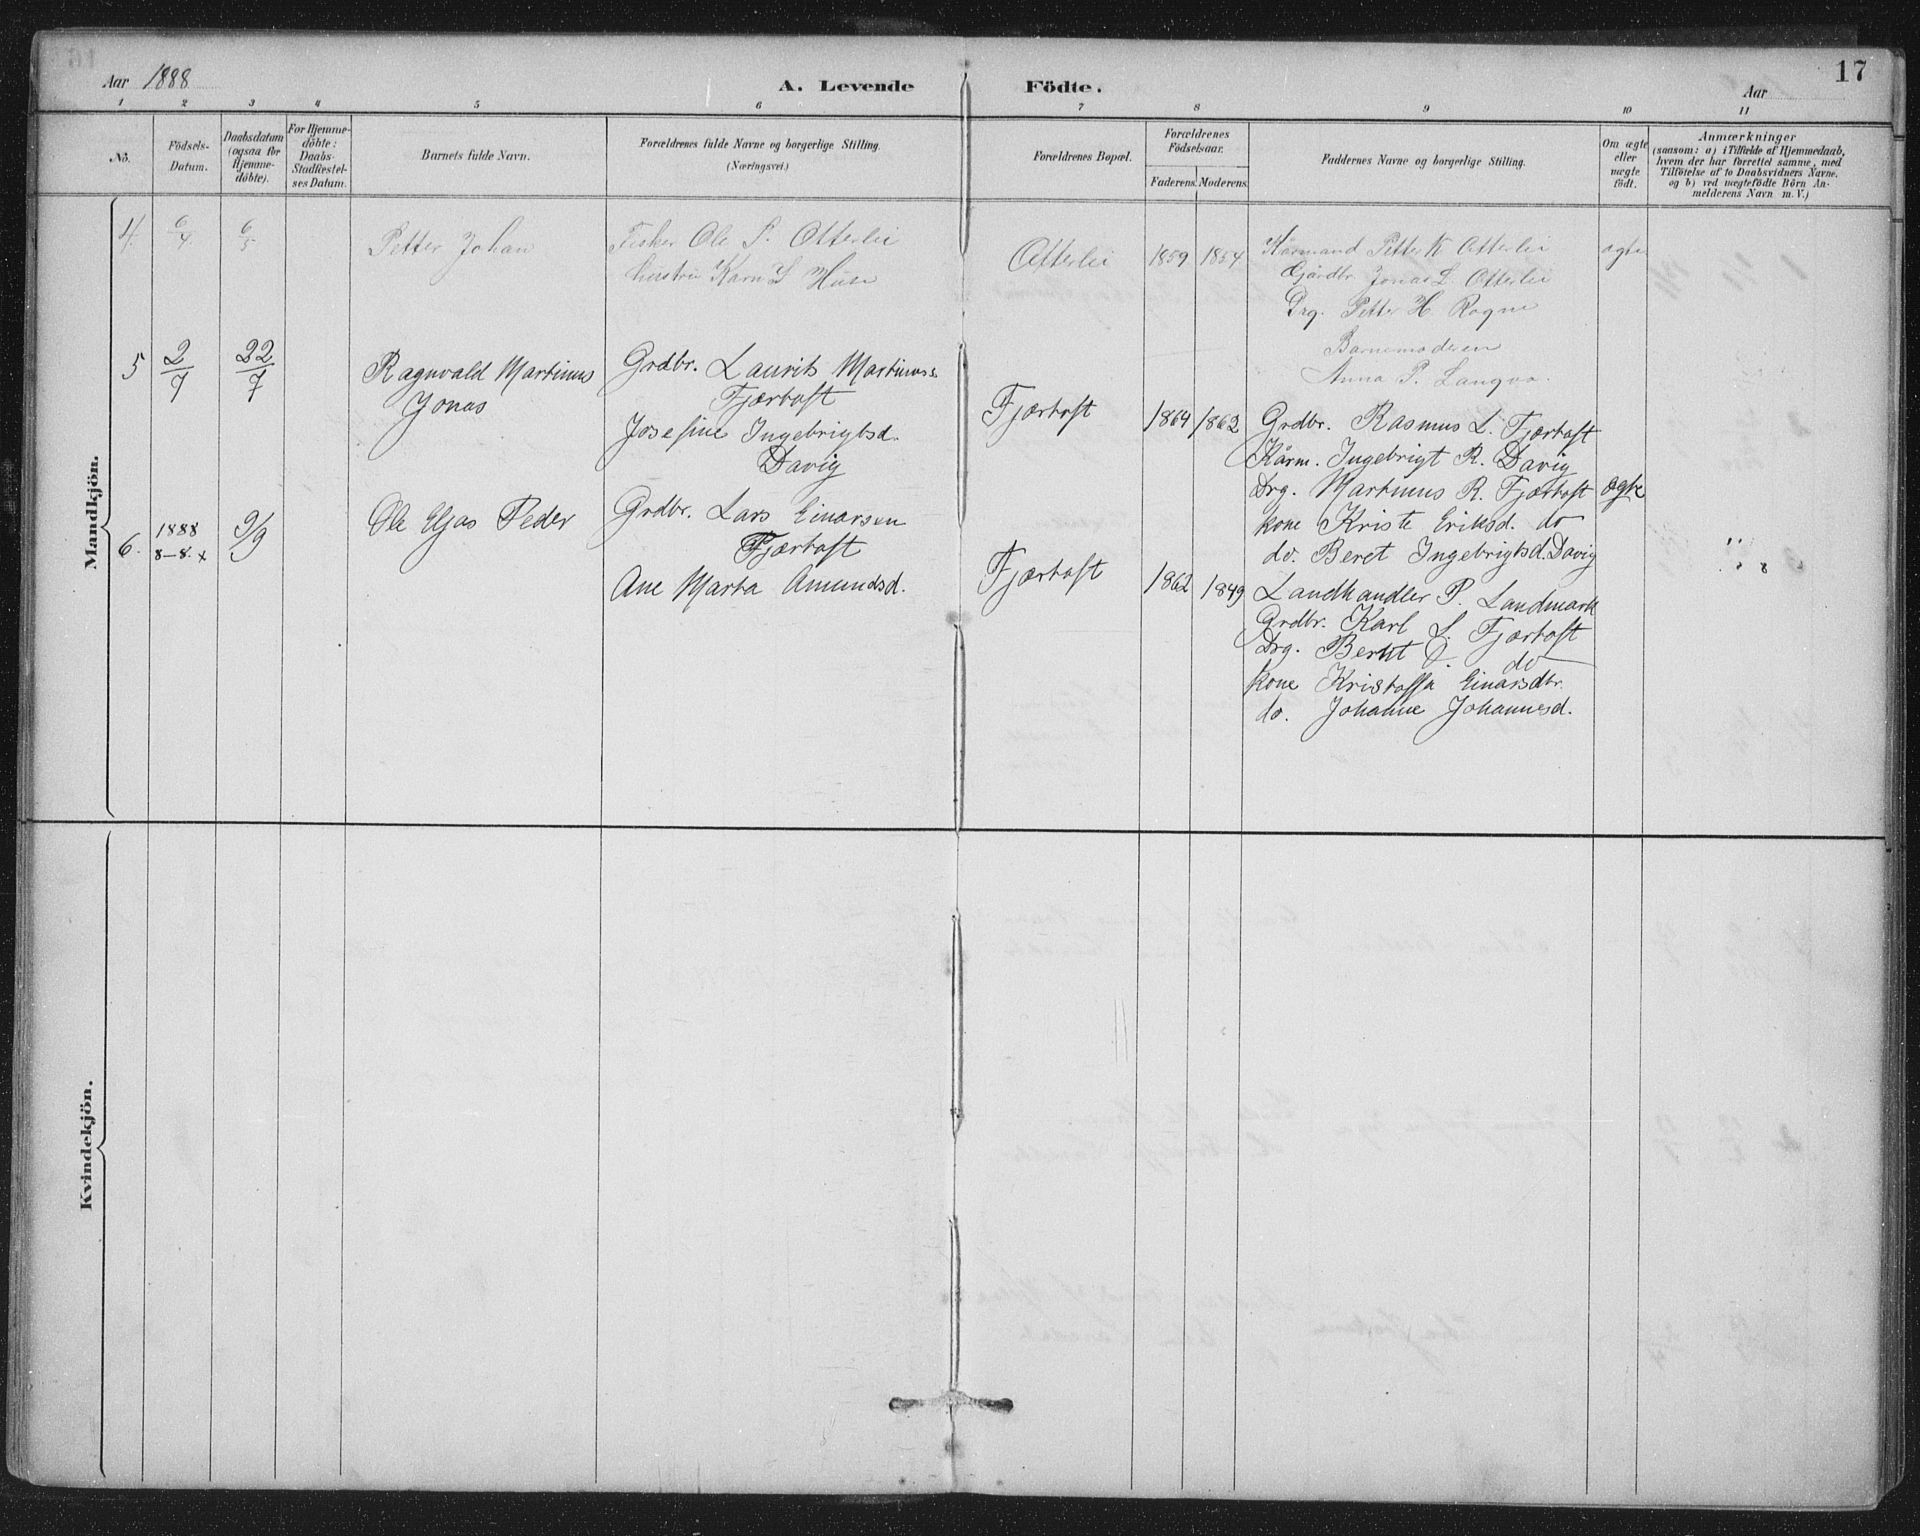 17
Aar 1888
A. Levende Födte.
Aar
1 2 3 4 5 6 7 8 9 10 11
No.
Födsels-
Datum.
Daabsdatum
(ogsaa for
Hjemme-
döbte).
For Hjemme-
döbte:
Daabs-
Stadfæstel-
ses Datum.
Barnets fulde Navn.
Forældrenes fulde Navne og borgerlige Stilling.
(Næringsvei.)
Forældrenes Bopæl.
Forældrenes
Födselsaar.
Faderens. Moderens.
Faddernes Navne og borgerlige Stilling.
Om ægte
eller
uægte
födt.
Anmærkninger
(saasom: a) i Tilfælde af Hjemmedaab,
hvem der har forrettet samme, med
Tilföielse af to Daabsvidners Navne,
og b) ved uægtefödte Börn An-
melderens Navn m. V.)
Mandkjön.
4. 6/4 6/5
Petter Johan
Fisker Ole P. Otterlei
hustru Karn L Huse
Otterlei
1859 1854
Kårmand Petter K Otterlei
Gårdbr. Jonas L Otterlei
Drg. Petter H Rogne
Barnemoderen
Anna P. Langva.
ægte
5 2/7 22/7
Ragnvald Martinus
Jonas
Grdbr. Laurits Martinus s
Fjærtoft
Josefine Ingebrigtsd.
Davig
Fjærtoft
1864 1862
Grdbr. Rasmus L. Fjærtoft
Kårm. Ingebrigt R. Davig
Drg. Martinus R. Fjærtoft
kone Kriste Eriksd. do
do. Beret Ingebrigtsd. Davig
ægte
6. 1888
8-8. x
9/9
Ole Eljas Peder
Grdbr. Lars Einarsen
Fjærtoft
Ane Marta Amundsd.
Fjærtoft
1862 1849
Landhandler P. Landmark
Grdbr. Karl L. Fjærtoft
Drg. Bernt J. do
kone Kristoffa Einarsdtr.
do. Johanne Johannesd.
"
Kvindekjön.